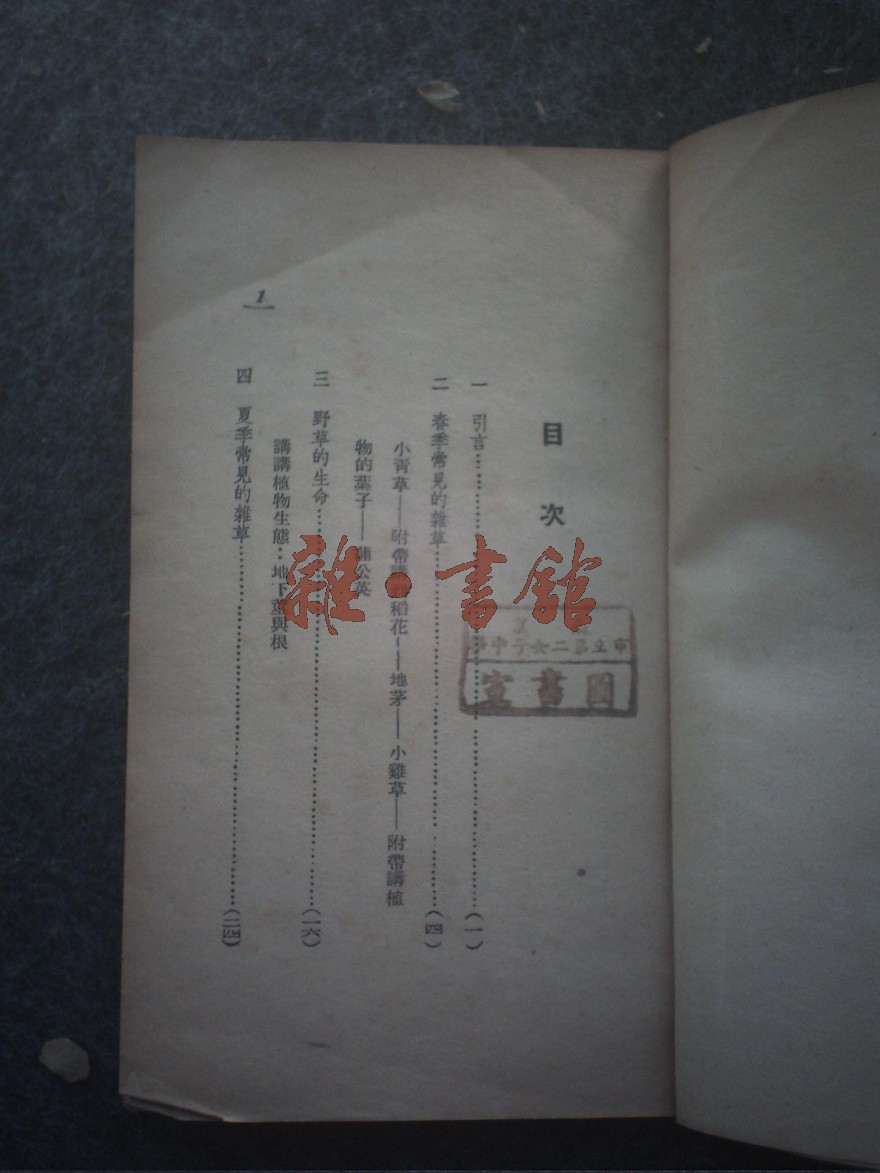 目次
一 引言……(一)
二 春季常見的雜草……(四)
小青草——附帶講 稻花——地茅——小雞草——附帶講植
物的葉子—— 公英
三 野草的生命……(一六)
講講植物生態:地下莖與根
四 夏季常見的雜草……(二四)
1
雜·書館
市立第二女子中學
圖書室